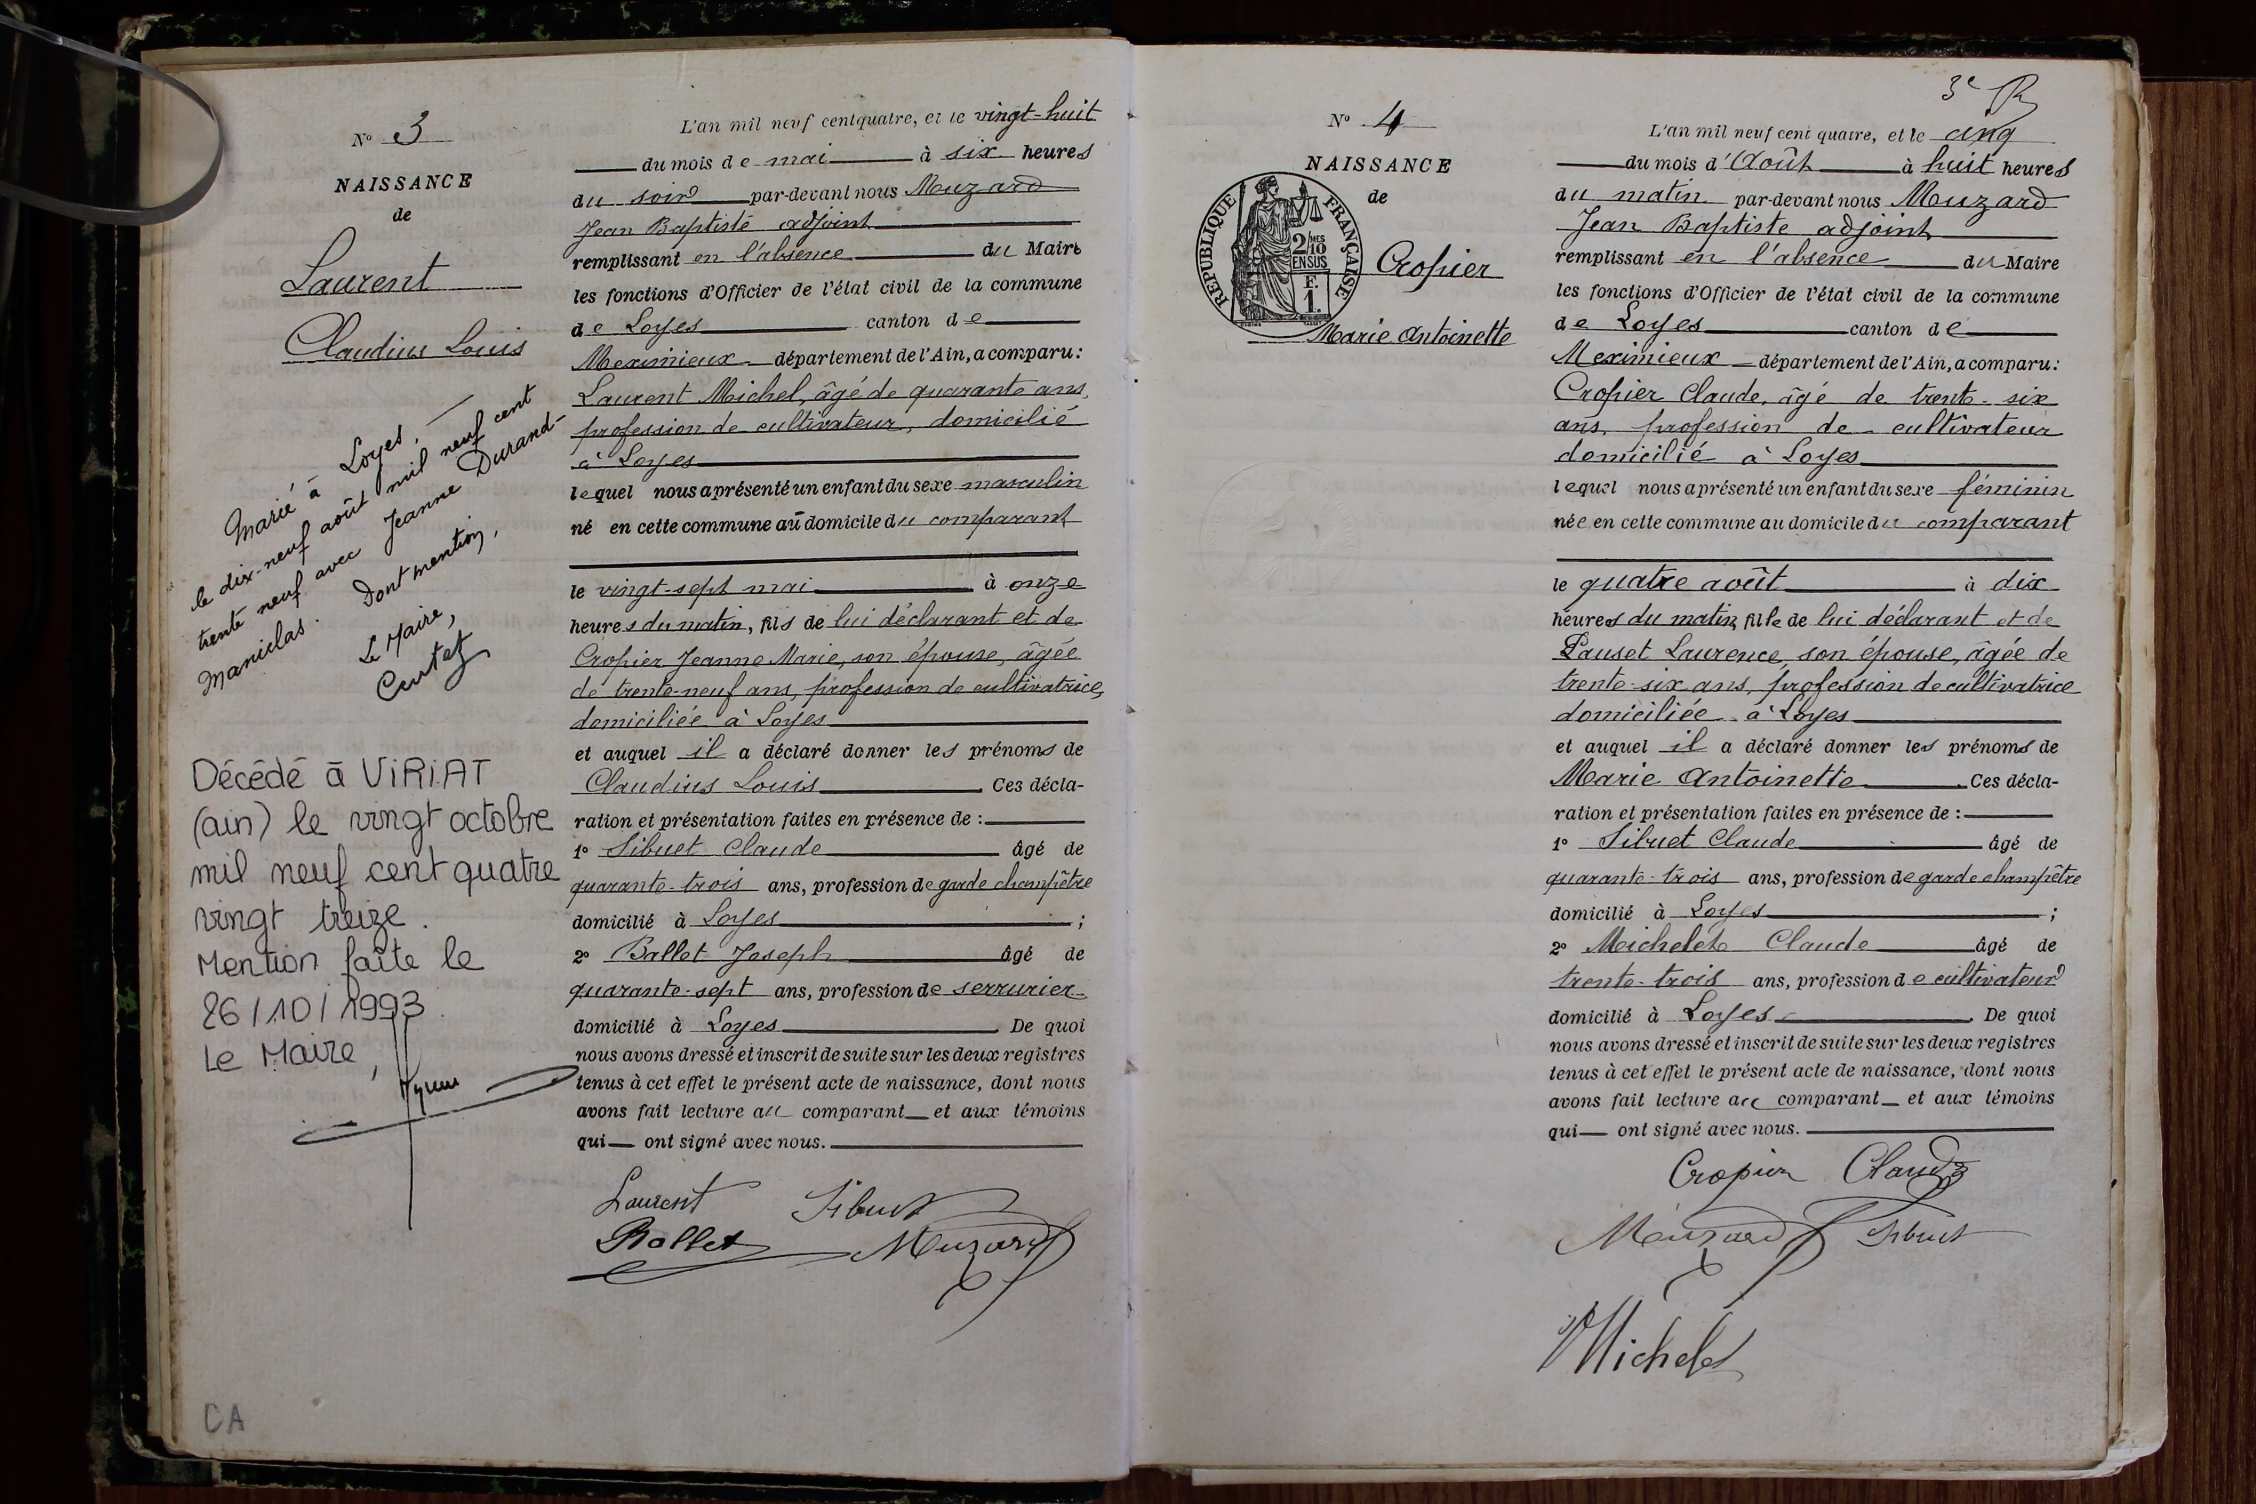 N° 3
NAISSANCE
de
Laurent
Claudius Louis
Marié à Loyes,
le dix-neuf août mil neuf cent
trente neuf avec Jeanne Durand-
Maniclas. Dont mention,
Le Maire,
Curtet
Décédé à ViRiAT
(ain) le vingt octobre
mil neuf cent quatre
vingt treize.
Mention faite le
26/10/1993.
Le Maire,
CA
L'an mil neuf cent quatre, et le vingt-huit
du mois de mai à six heures
du soir par-devant nous Muzard
Jean Baptiste adjoint
remplissant en l'absence du Maire
les fonctions d'Officier de l'état civil de la commune
de Loyes canton de
Meximieux département de l'Ain, a comparu:
Laurent Michel, âgé de quarante ans,
profession de cultivateur, domicilié
à Loyes
lequel nous a présenté un enfant du sexe masculin
né en cette commune au domicile du comparant
le vingt-sept mai à onze
heures du matin, fils de lui déclarant et de
Cropier Jeanne Marie, son épouse, âgée
de trente-neuf ans, profession de cultivatrice,
domiciliée à Loyes
et auquel il a déclaré donner les prénoms de
Claudius Louis. Ces décla-
ration et présentation faites en présence de :
1° Sibuet Claude âgé de
quarante-trois ans, profession de garde champêtre
domicilié à Loyes ;
2° Ballet Joseph âgé de
quarante-sept ans, profession de serrurier
domicilié à Loyes. De quoi
nous avons dressé et inscrit de suite sur les deux registres
tenus à cet effet le présent acte de naissance, dont nous
avons fait lecture au comparant et aux témoins
qui ont signé avec nous.
Laurent Sibuet
Ballet Muzard
3e R
N° 4
NAISSANCE
de
REPUBLIQUE FRANÇAISE
2/10 MES
EN SUS
F.
1.
Cropier
Marie Antoinette
L'an mil neuf cent quatre, et le cinq
du mois d'Août à huit heures
du matin par-devant nous Muzard
Jean Baptiste adjoint
remplissant en l'absence du Maire
les fonctions d'Officier de l'état civil de la commune
de Loyes canton de
Meximieux département de l'Ain, a comparu:
Cropier Claude, âgé de trente-six
ans, profession de cultivateur
domicilié à Loyes
lequel nous a présenté un enfant du sexe féminin
née en cette commune au domicile du comparant
le quatre août à dix
heures du matin, fille de lui déclarant et de
Pauset Laurence, son épouse, âgée de
trente-six ans, profession de cultivatrice
domiciliée à Loyes
et auquel il a déclaré donner les prénoms de
Marie Antoinette. Ces décla-
ration et présentation faites en présence de :
1° Sibuet Claude âgé de
quarante-trois ans, profession de garde champêtre
domicilié à Loyes ;
2° Michelet Claude âgé de
trente-trois ans, profession de cultivateur
domicilié à Loyes. De quoi
nous avons dressé et inscrit de suite sur les deux registres
tenus à cet effet le présent acte de naissance, dont nous
avons fait lecture au comparant et aux témoins
qui ont signé avec nous.
Cropier Claude
Muzard Sibuet
Michelet